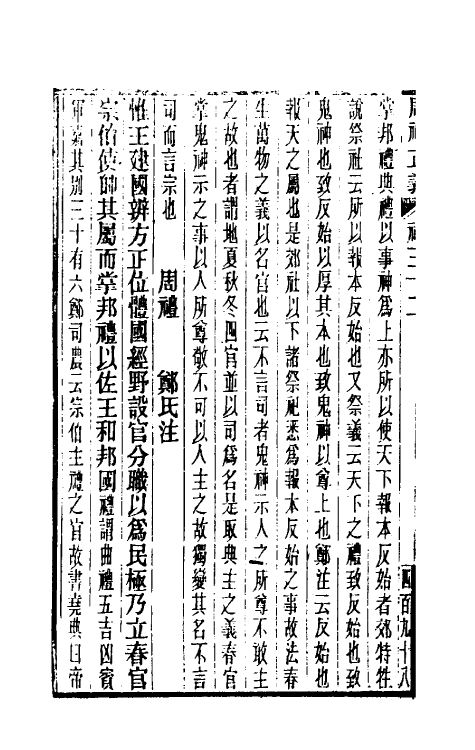 周禮正義 禮三十二 四百九十八
掌邦禮典禮以事神爲上亦所以使天下報本反始者郊特牲
說祭社云所以報本反始也又祭義云天下之禮致反始也致
鬼神也致反始以厚其本也致鬼神以尊上也鄭注云反始也
報天之屬也是郊社以下諸祭祀悉爲報本反始之事故法春
生萬物之義以名官也云不言司者鬼神示人之所尊不敢主
之故也者謂地夏秋冬四官並以司爲名是取典主之義春官
掌鬼神示之事以人所尊敬不可以人主之故獨變其名不言
司而言宗也
周禮 鄭氏注
惟王建國辨方正位體國經野設官分職以爲民極乃立春官
宗伯使帥其屬而掌邦禮以佐王和邦國禮謂曲禮五吉凶賓
軍嘉其別三十有六鄭司農云宗伯主禮之官故書堯典曰帝